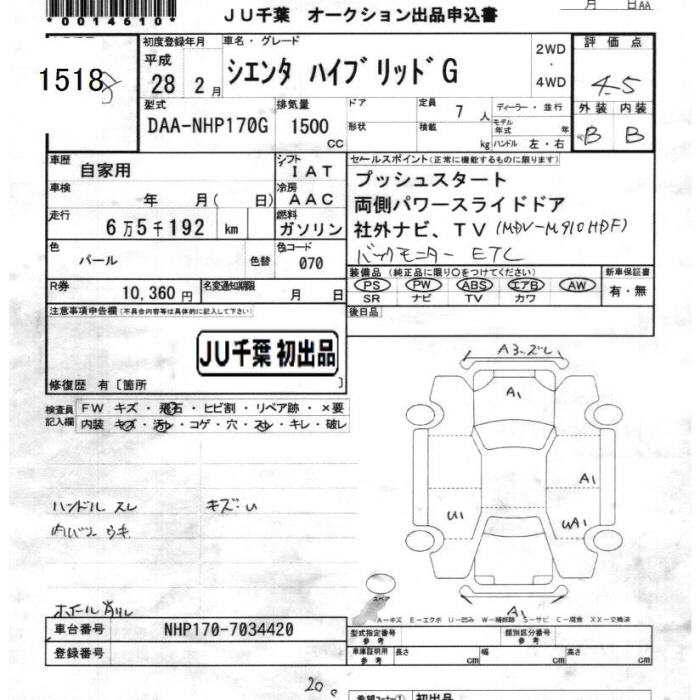 *0014610*
月 日AA
JU千葉 オークション出品申込書
1518
初度登録年月 車名・グレード 2WD・4WD 評価点
平成 28 2月 シエンタ ハイブリッドG 4.5
型式 排気量 ドア 定員 7人 ディーラー・並行 外装 内装
DAA-NHP170G 1500cc 形状 積載 kg モデル年式 年 ハンドル 左・右 B B
車歴 自家用 シフト IAT セールスポイント(正常に機能するものに限ります)
車検 年 月( 日) 冷房 AAC プッシュスタート
走行 6万5千192 km 燃料 ガソリン 両側パワースライドドア
社外ナビ、TV(MDV-M910HDF)
色 パール 色替 色コード 070 バックモニター ETC
R券 10,360円 名変通知期限 月 日
装備品(純正品に限り○をつけてください) 新車保証書
PS PW ABS エアB AW 有・無
SR ナビ TV カワ
注意事項申告欄(不具合内容等は具体的に記入して下さい) 後日品
JU千葉 初出品
修復歴 有〔箇所 〕
検査員記入欄 FW キズ・飛石・ヒビ割・リペア跡・×要
内装 キズ・汚レ・コゲ・穴・スレ・キレ・破レ
A3・ズレ
A1
A1
U1
UA1
A1
ハンドル スレ キズ・U
内バリ ウキ
ホイール 削れ
スペア
A-キズ E-エクボ U-凹み W-補修跡 S-サビ C-腐食 XX-交換済
車台番号 NHP170-7034420
登録番号
型式指定番号 参考 類別区分番号 参考
車庫証明用 参考 長さ cm 幅 cm 高さ cm
希望コーナー① 初出品